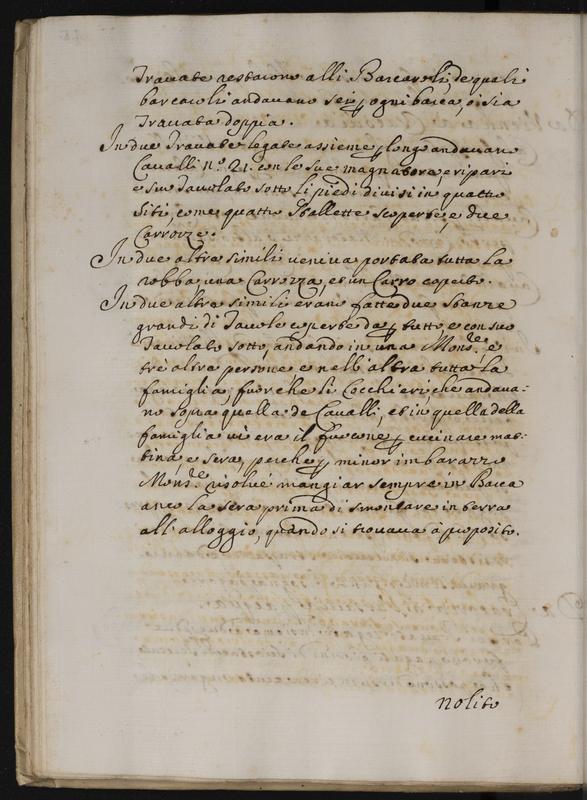 Travate restarono alli Barcaroli, de quali
barcaroli andavano sei p ogni barca, o sia
Travata doppia.
In due Travate legate assieme p longo andavano
Cavalli n.º 21. con le sue magnatore, e ripari
e suo Tavolato sotto li piedi divisi in quattro
siti, come quattro stallette scoperte, e due
Carrozze.
In due altre simili veniva portata tutta la
robba, una Carrozza, et un Carro coperto.
In due altre simili erano fatte due stanze
grandi di Tavole coperte da p tutto, e con suo
Tavolato sotto, andando in una Mons.re e
tré altre persone, e nell'altra tutta la
famiglia, fuorche li Cocchieri che andava:
no sopra quella de Cavalli, et in quella della
famiglia vi era il fuocone p cucinare mat:
tina, e sera, perche p minor imbarazzo
Mons.re risolvé mangiar sempre in Barca
anco la sera prima di smontare in terra
all'alloggio, quando si trovava à proposito.
nolito